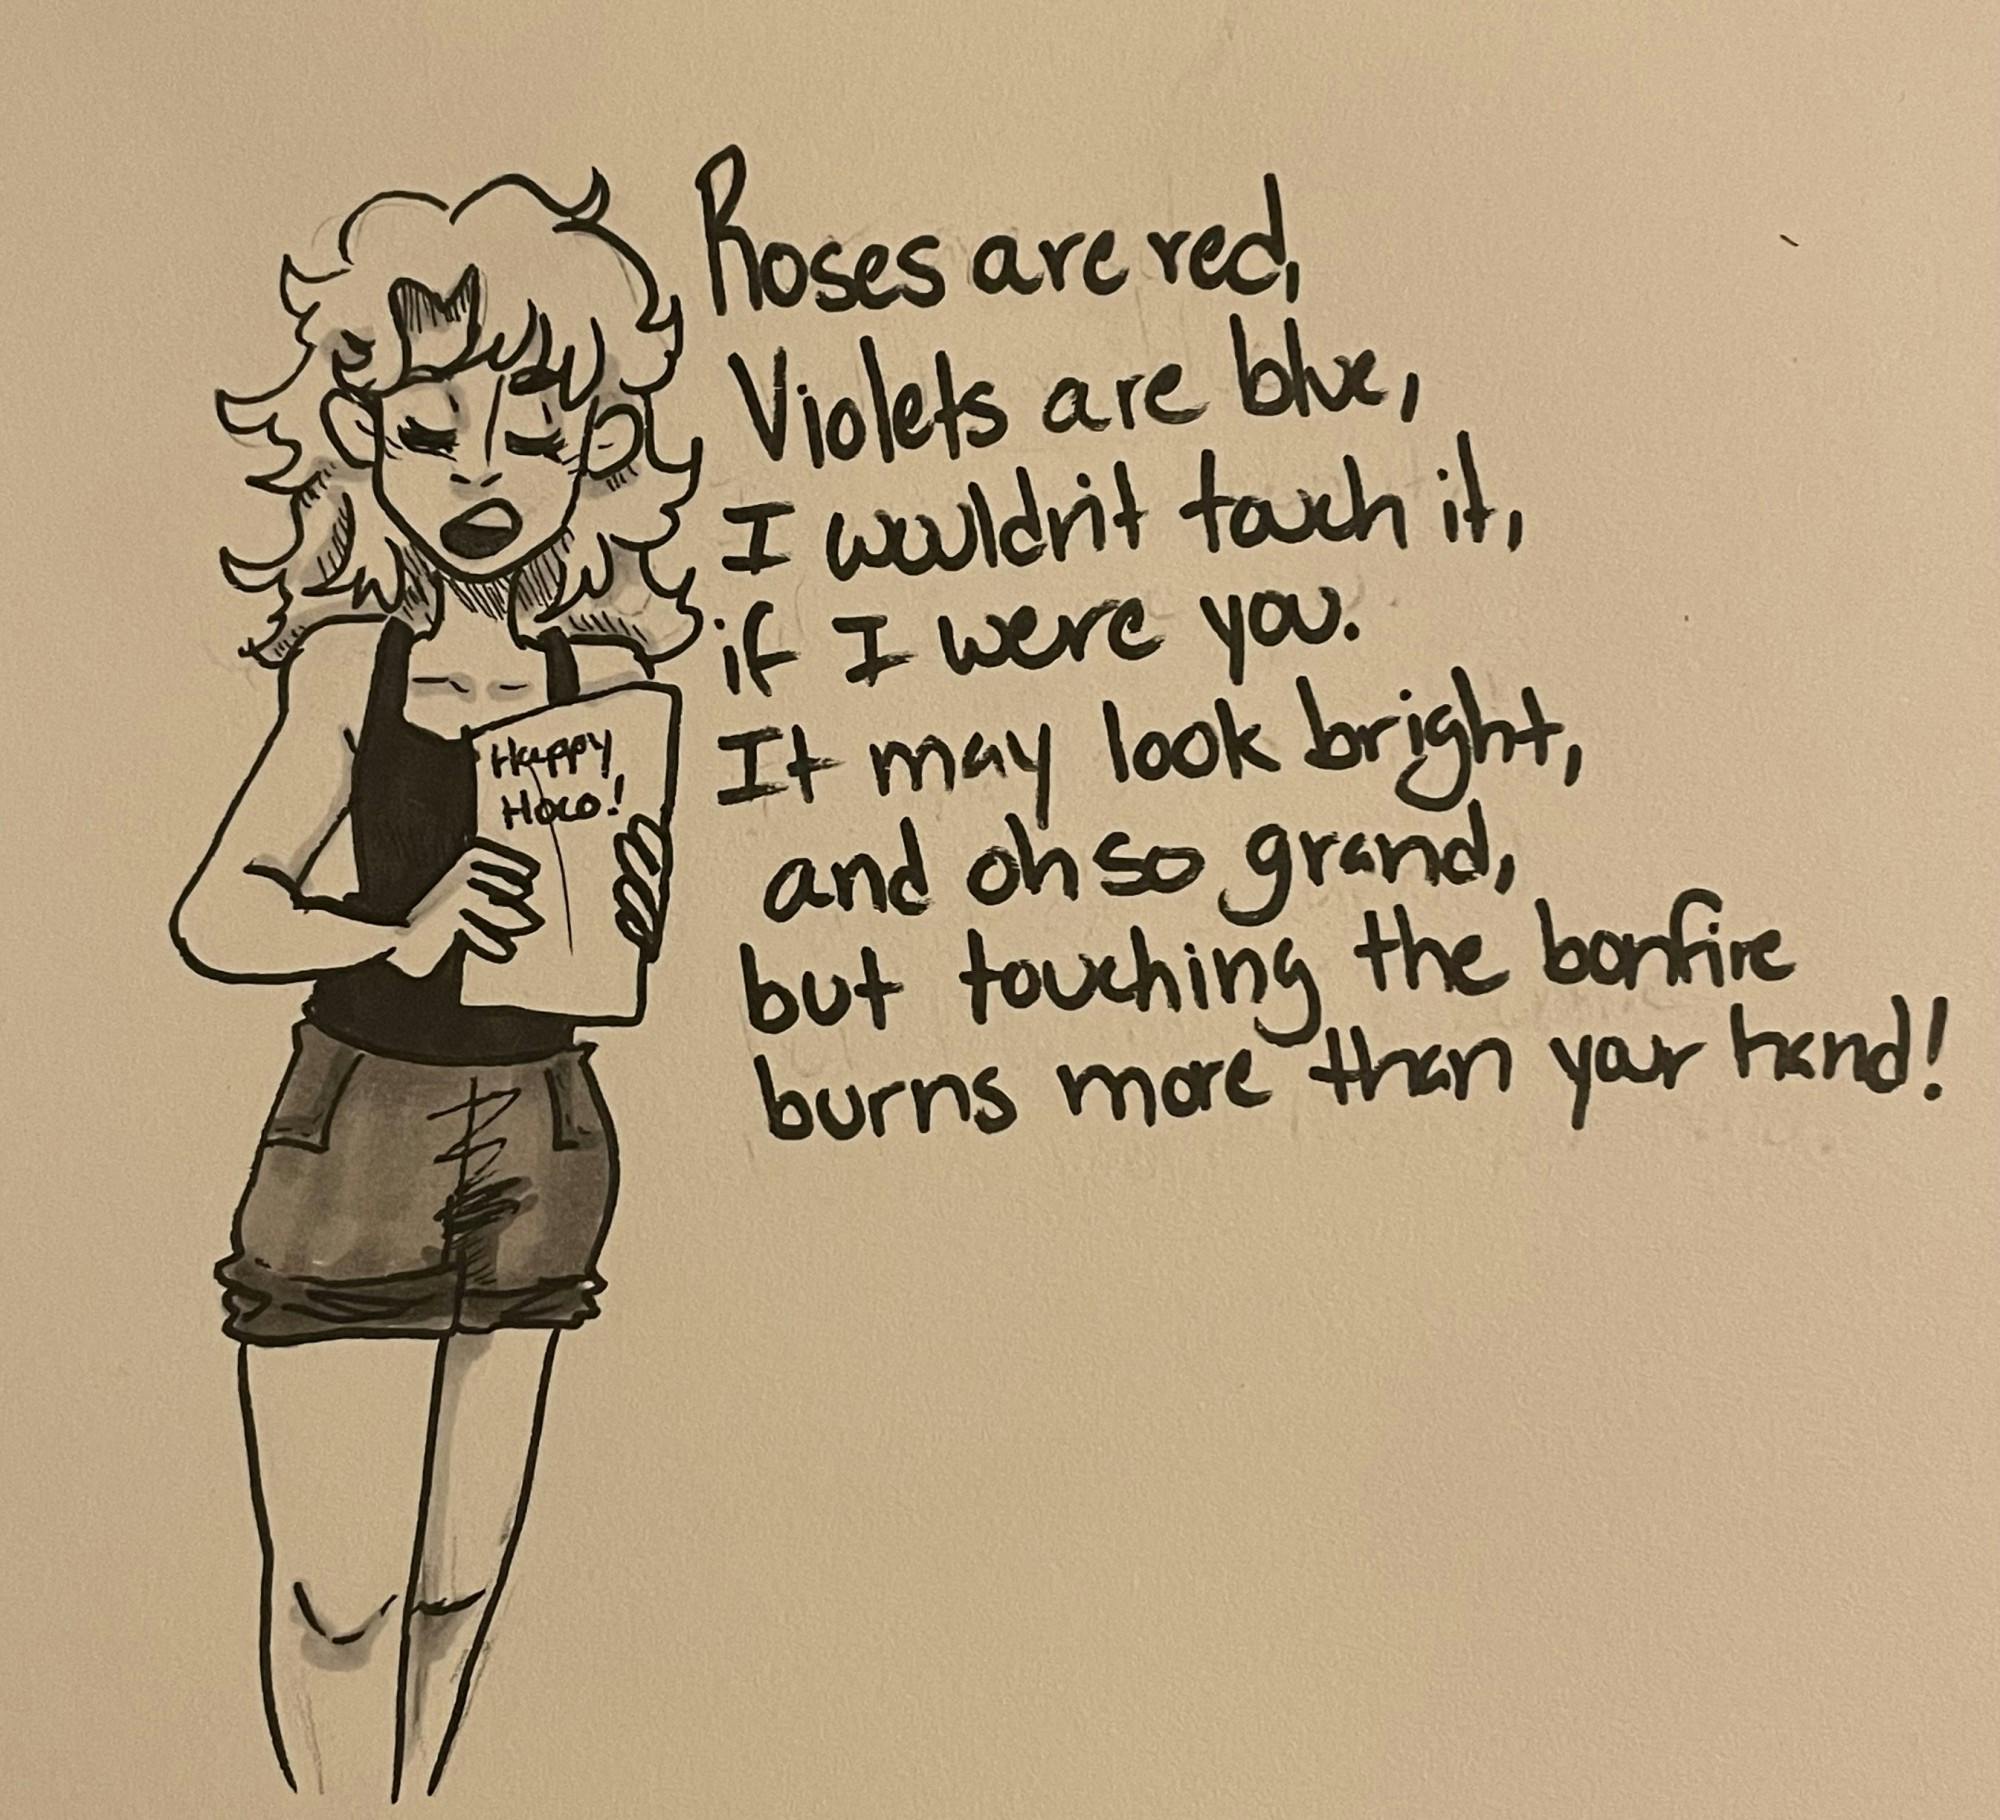 Roses are red,
Violets are blue,
I wouldn't touch it,
if I were you.
It may look bright,
and oh so grand,
but touching the bonfire
burns more than your hand!
Happy
Hoco!